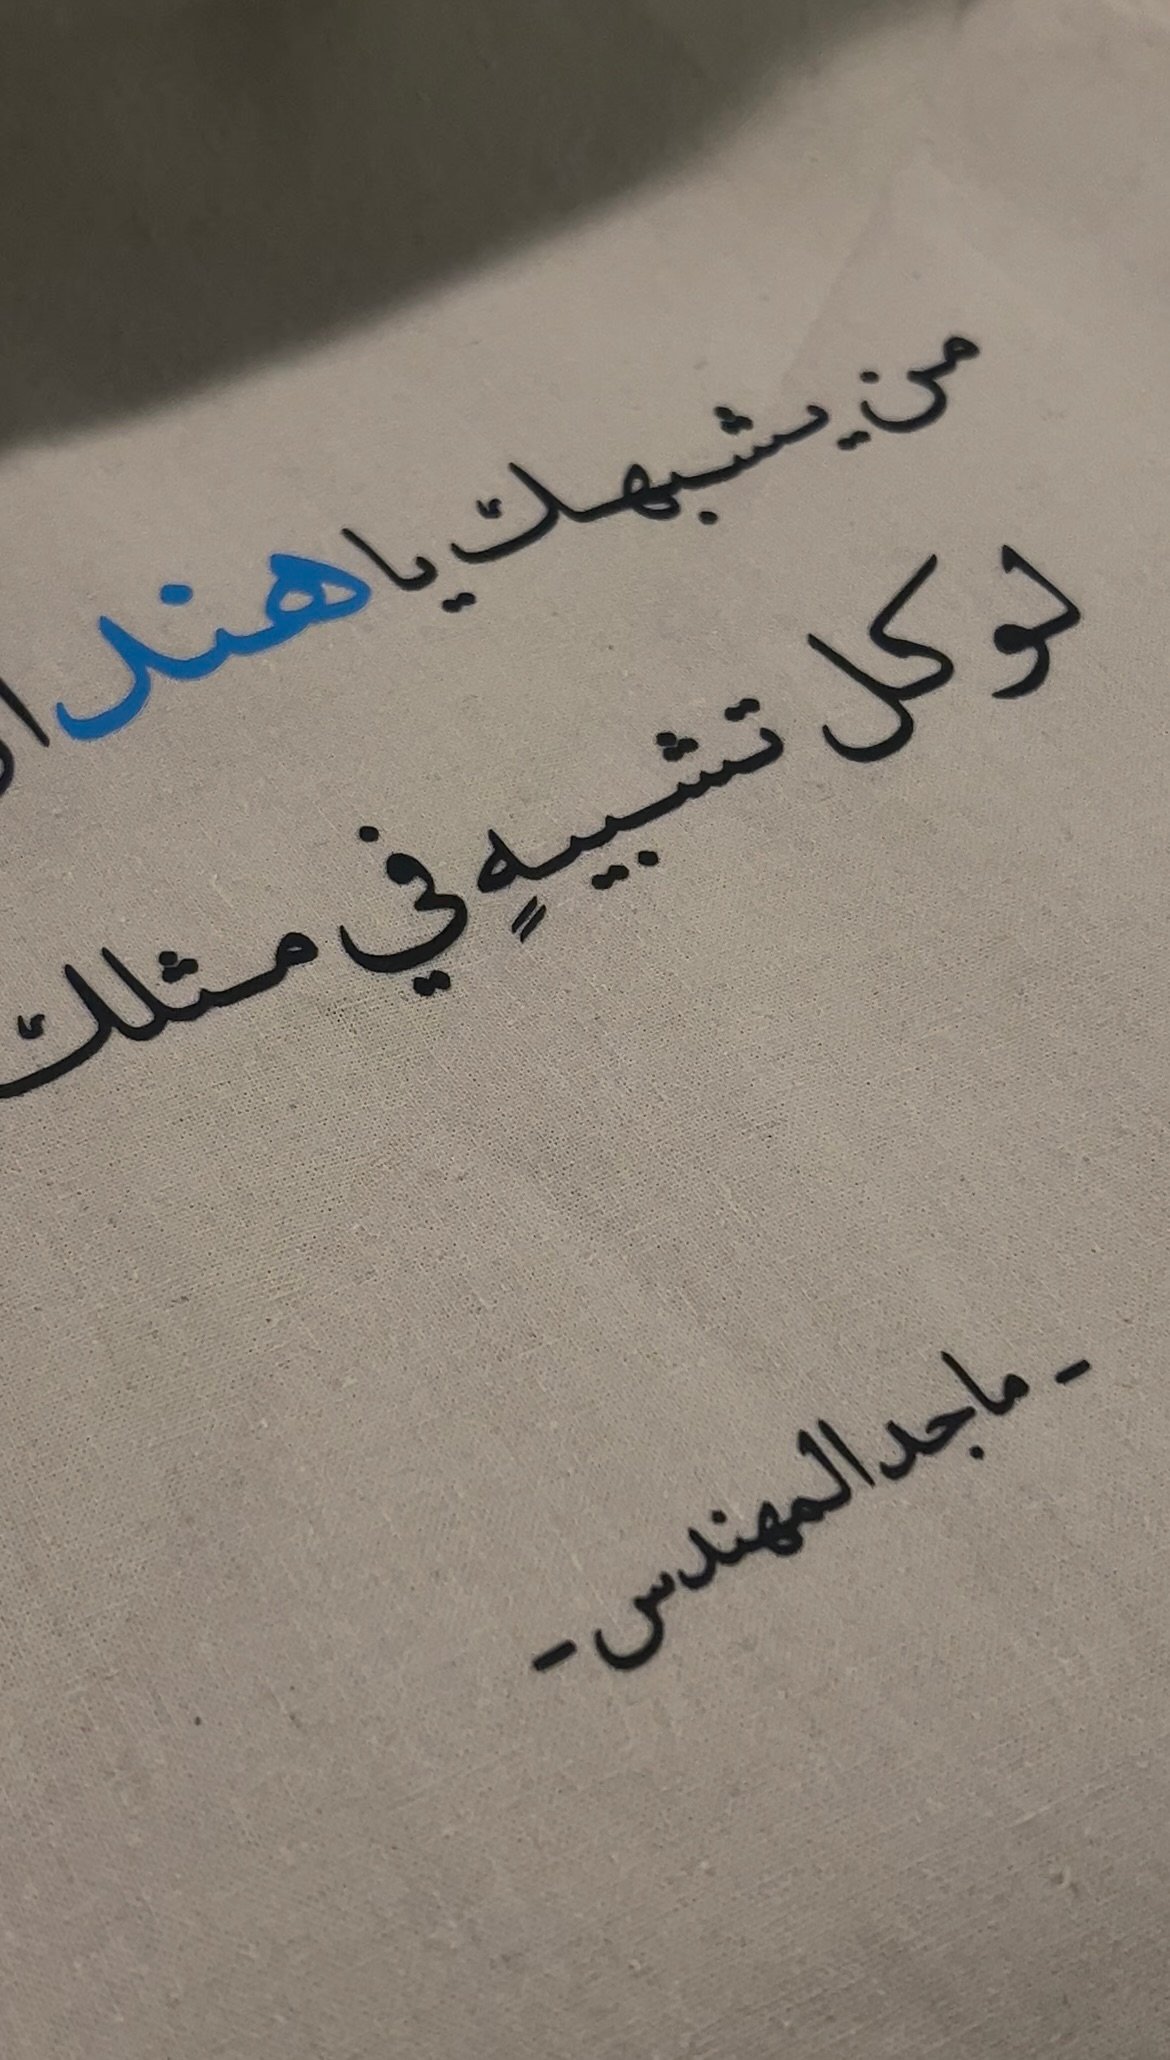 من يشبهك يا هند
لو كل تشبيهٍ في مثلك
- ماجد المهندس -